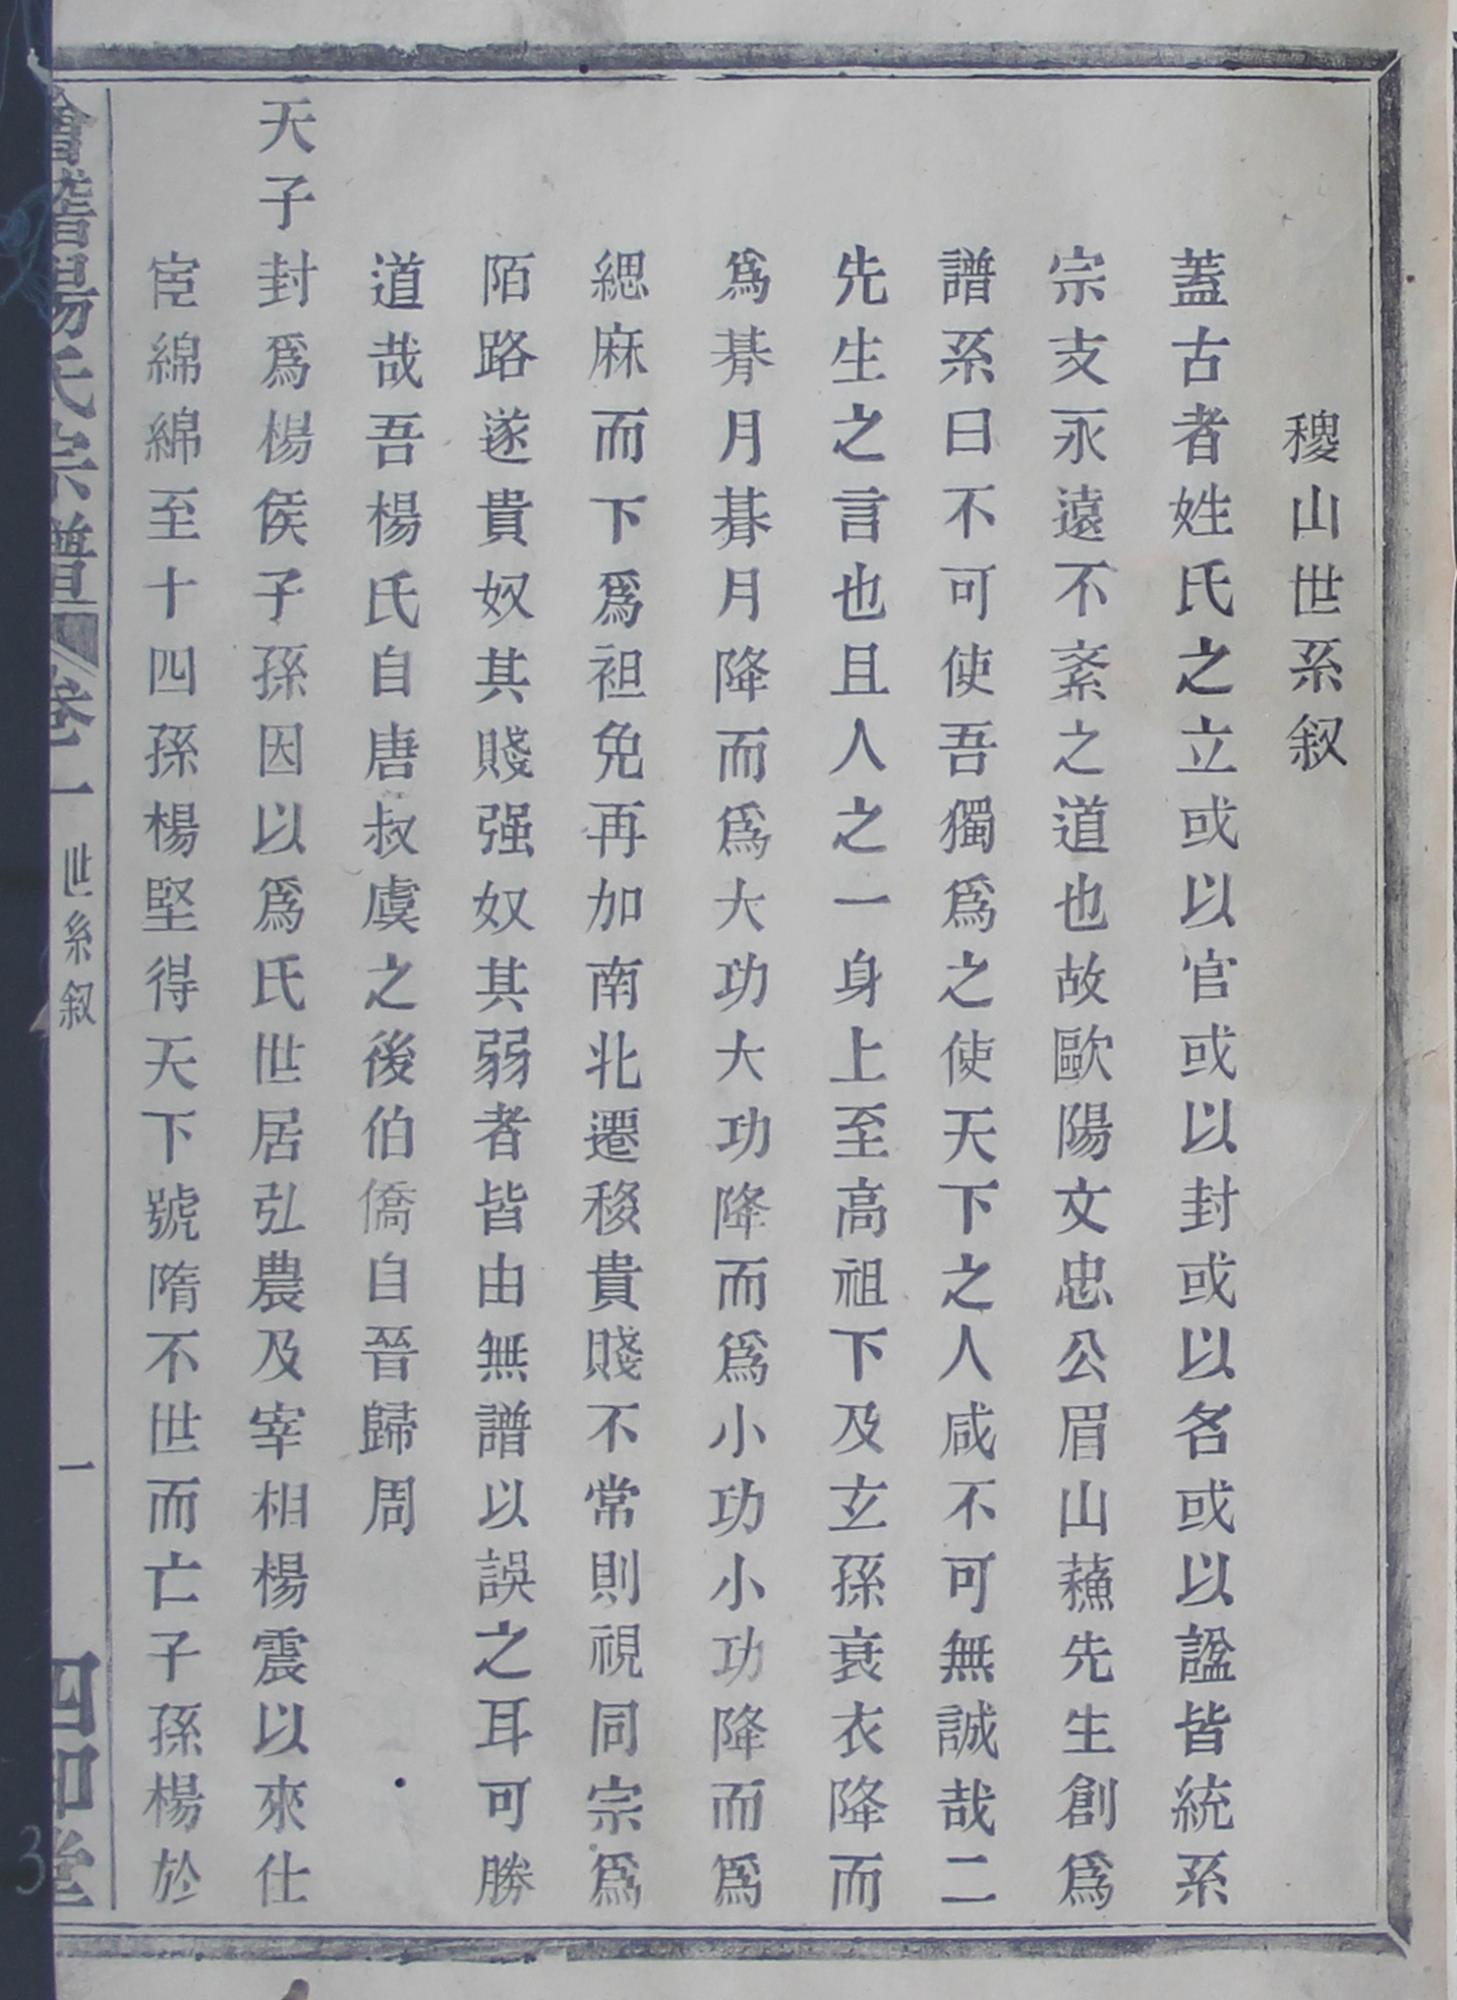 稷山世系叙
蓋古者姓氏之立或以官或以封或以名或以諡皆統系
宗支永遠不紊之道也故歐陽文忠公眉山蘓先生創爲
譜系曰不可使吾獨爲之使天下之人咸不可無誠哉二
先生之言也且人之一身上至高祖下及玄孫衰衣降而
爲朞月朞月降而爲大功大功降而爲小功小功降而爲
緦麻而下爲袒免再加南北遷移貴賤不常則視同宗爲
陌路遂貴奴其賤强奴其弱者皆由無譜以誤之耳可勝
道哉吾楊氏自唐叔虞之後伯僑自晉歸周
天子封爲楊侯子孫因以爲氏世居弘農及宰相楊震以來仕
宦綿綿至十四孫楊堅得天下號隋不世而亡子孫楊於
會稽楊氏宗譜 卷一 世系叙 一 四知堂
3